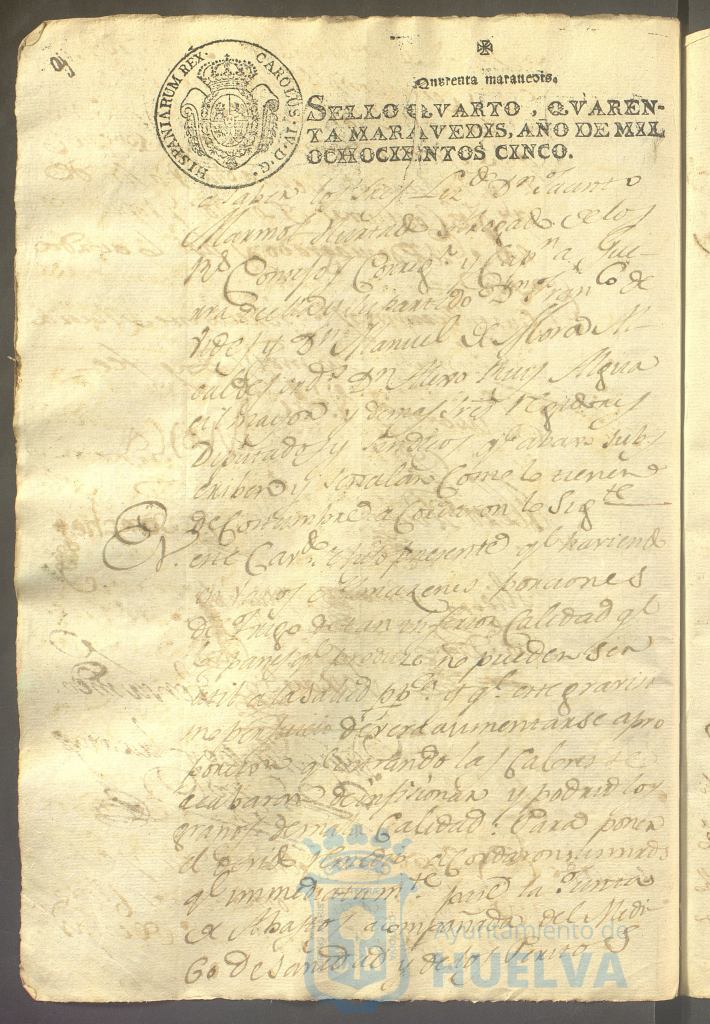 HISPANIARUM REX. CAROLUS IV. D. G.
Quarenta maravedis.
SELLO QVARTO, QVAREN-
TA MARAVEDIS, AÑO DE MIL
OCHOCIENTOS CINCO.
a saber los Sres Lizdo Dn Jacinto
Marmol Hurtado Abogado de los
Rs Consejos Corregr y Capn a Gue
rra de esta y su partido Dn Franco de
y Dn Manuel de Mora
caldes ords Dn Alexo Ruis Algua
cil maior y demas Sres Regidores
Diputados y Sindicos qe abajo subs
criben y señalan Como lo tienen
de Costumbre acordaron lo Sigte
En este Cavdo se hizo presente qe haviendo
en varios Almazenes porciones
de Trigo de tan inferior Calidad qe
los panes qe produze no pueden ser
util a la salud pbca y qe este gravisi
mo perjuicio devera aumentarse a pro
porcion qe entrando las Calores se
acabaran de inficionar y podrir los
granos de mala Calidad: Para poner
el devido remedio acordaron unimes
qe immediatamte pase la Junta
de Abastos acompañada del Medi
co de Sanidad y de qts Peritos
Ayuntamiento de
HUELVA